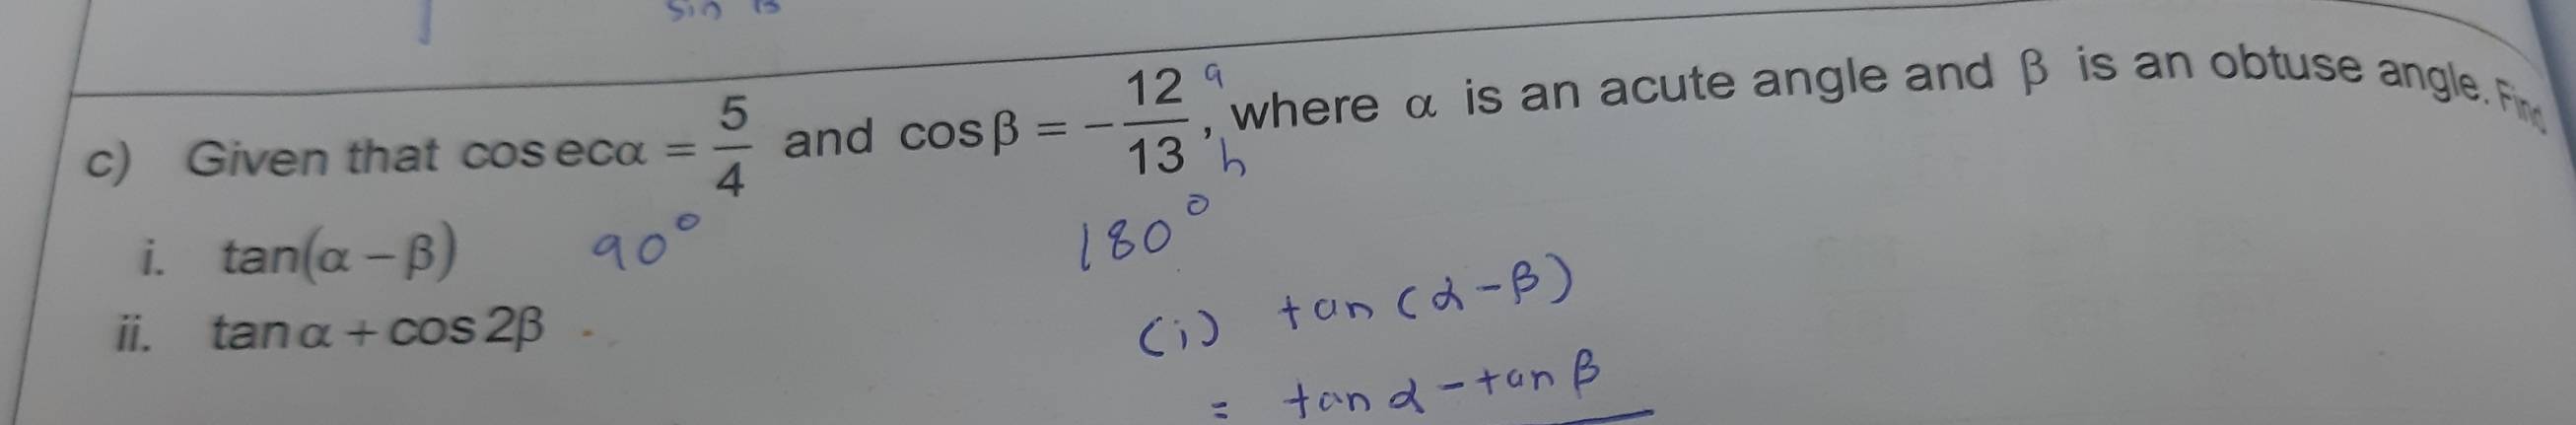 sin B
c) Given that cosecα = 5/4 and cosβ = -12/13, where α is an acute angle and β is an obtuse angle. Find
a
h
i. tan(α – β)
90°
180°
ii. tanα + cos2β
(i) tan(α-β)
= tanα - tanβ